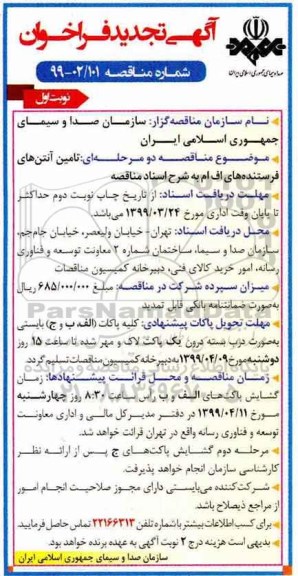 آگهی تجدید فراخوان
صدا و سیمای جمهوری اسلامی ایران
شماره مناقصه ۹۹-۰۲/۱۰۱
نوبت اول
نام سازمان مناقصه گزار: سازمان صدا و سیمای
جمهوری اسلامی ایران
موضوع مناقصه دو مرحله‌ای: تامین آنتن‌های
فرستنده‌های اف ام به شرح اسناد مناقصه
مهلت دریافت اسناد: از تاریخ چاپ نوبت دوم حداکثر
تا پایان وقت اداری مورخ ۱۳۹۹/۰۳/۲۴ می‌باشد.
محل دریافت اسناد: تهران- خیابان ولیعصر، خیابان جام‌جم،
سازمان صدا و سیما، ساختمان شماره ۲ معاونت توسعه و فناوری
رسانه، امور خرید کالای فنی، دبیرخانه کمیسیون مناقصات
میزان سپرده شرکت در مناقصه: مبلغ ۶۸۵/۰۰۰/۰۰۰ ریال
به‌صورت ضمانتنامه بانکی قابل تمدید
مهلت تحویل پاکات پیشنهادی: کلیه پاکات (الف، ب و ج) بایستی
به‌صورت درب بسته درون یک پاکت لاک و مهر شده تا ساعت ۱۵ روز
دوشنبه مورخ ۱۳۹۹/۰۴/۰۹ به دبیرخانه کمیسیون مناقصات تسلیم گردد.
زمان مناقصه و محل قرائت پیشنهادها: زمان
گشایش پاکت‌های الف و ب راس ساعت ۸:۳۰ روز چهارشنبه
مورخ ۱۳۹۹/۰۴/۱۱ در دفتر مدیرکل مالی و اداری معاونت
توسعه و فناوری رسانه واقع در تهران قرائت خواهد شد.
مرحله دوم گشایش پاکت‌های ج پس از ارائه نظر
کارشناسی سازمان انجام خواهد پذیرفت.
شرکت‌کننده می‌بایستی دارای مجوز صلاحیت انجام امور
از مراجع ذیصلاح باشد.
برای کسب اطلاعات بیشتر با شماره تلفن ۲۲۱۶۶۳۱۳ تماس حاصل فرمایید.
بدیهی است هزینه درج ۲ نوبت آگهی به عهده برنده خواهد بود.
سازمان صدا و سیمای جمهوری اسلامی ایران